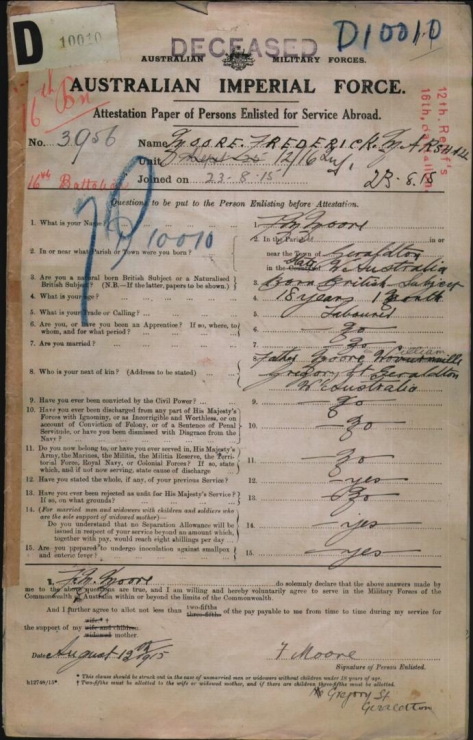 D
10010
DECEASED
D10010
AUSTRALIAN MILITARY FORCES.
AUSTRALIAN IMPERIAL FORCE.
Attestation Paper of Persons Enlisted for Service Abroad.
16th Bn
12th Reinf's
16th Battalion
No. 3956 Name MOORE. FREDERICK MARSHALL
Unit 12/16
16th Battalion Joined on 23-8-15 23-8.15
Questions to be put to the Person Enlisting before Attestation.
10010
1. What is your Name? 1. F M Moore
2. In or near what Parish or Town were you born? 2. In the Parish in or
near the Town of Geraldton
in the County W Australia
3. Are you a natural born British Subject or a Naturalised
British Subject? (N.B.—If the latter, papers to be shown.) 3. Born British Subject
4. What is your age? 4. 18 years 1 month
5. What is your Trade or Calling? 5. Labourer
6. Are you, or have you been an Apprentice? If so, where, to
whom, and for what period? 6. No
7. Are you married? 7. No
8. Who is your next of kin? (Address to be stated) 8. Father Moore William
Gregory St Geraldton
W Australia
9. Have you ever been convicted by the Civil Power? 9. No
10. Have you ever been discharged from any part of His Majesty's
Forces with Ignominy, or as Incorrigible and Worthless, or on
account of Conviction of Felony, or of a Sentence of Penal
Servitude, or have you been Dismissed with Disgrace from the
Navy? 10. No
11. Do you now belong to, or have you ever served in, His Majesty's
Army, the Marines, the Militia, the Militia Reserve, the Territorial
Force, Royal Navy, or Colonial Forces? If so, state
which, and if not now serving, state cause of discharge 11. No
12. Have you stated the whole, if any, of your previous Service? 12. yes
13. Have you ever been rejected as unfit for His Majesty's Service?
If so, on what grounds? 13. No
14. (For married men and widowers with children and soldiers who
are the sole support of widowed mother)—
Do you understand that no Separation Allowance will be
issued in respect of your service beyond an amount which,
together with pay, would reach eight shillings per day 14. yes
15. Are you prepared to undergo inoculation against smallpox
and enteric fever? 15. yes
I, F M Moore do solemnly declare that the above answers made by
me to the above questions are true, and I am willing and hereby voluntarily agree to serve in the Military Forces of the
Commonwealth of Australia within or beyond the limits of the Commonwealth.
And I further agree to allot not less than two-fifths three-fifths of the pay payable to me from time to time during my service for
the support of my wife wife and children widowed mother.
Date August 12th 1915 F Moore
Signature of Person Enlisted.
* This clause should be struck out in the case of unmarried men or widowers without children under 18 years of age.
† Two-fifths must be allotted to the wife or widowed mother, and if there are children three-fifths must be allotted.
Gregory St
Geraldton